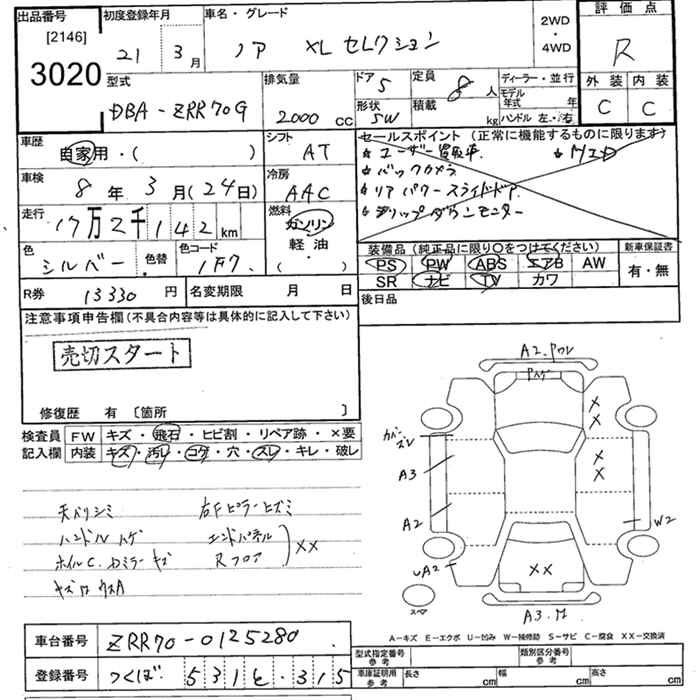 出品番号 初度登録年月 車名・グレード 2WD 評価点
[2146] ・
3020 21 3月 ノア XL セレクション 4WD R
型式 排気量 ドア 5 定員 8人 ディーラー・並行 外装 内装
DBA-ZRR70G 2000 CC 形状 SW 積載 kg モデル年式 年 C C
ハンドル 左・右
車歴 自家用・( ) シフト AT セールスポイント(正常に機能するものに限ります)
★ ユーザー買取車 ★
車検 8年 3月(24日) 冷房 AAC ★ バックカメラ
★ リア パワースライドドア
走行 17万2千142km 燃料 ガソリン ★ フリップダウンモニター
軽油
・
( )
色 シルバー 色替・ 色コード 1F7 装備品(純正品に限り○をつけてください) 新車保証書
PS PW ABS エアB AW 有・無
SR ナビ TV カワ
R券 13330円 名変期限 月 日 後日品
注意事項申告欄(不具合内容等は具体的に記入して下さい)
売切スタート
修復歴 有 〔箇所 〕
検査員 FW キズ・飛石・ヒビ割・リペア跡・×要
記入欄 内装 キズ・汚レ・コゲ・穴・スレ・キレ・破レ
天バリシミ 右Fピラーヒズミ
ハンドルハゲ エンドパネル
ホイルC. Rフロア XX
A2.
XX
XX
A3
A2
W2
UA2
XX
スペア
A3.
A-キズ E-エクボ U-凹み W-補修跡 S-サビ C-腐食 XX-交換済
車台番号 ZRR70-0125280
登録番号 つくば 531 315
型式指定番号 参考 類別区分番号 参考
車庫証明用 参考 長さ cm 幅 cm 高さ cm